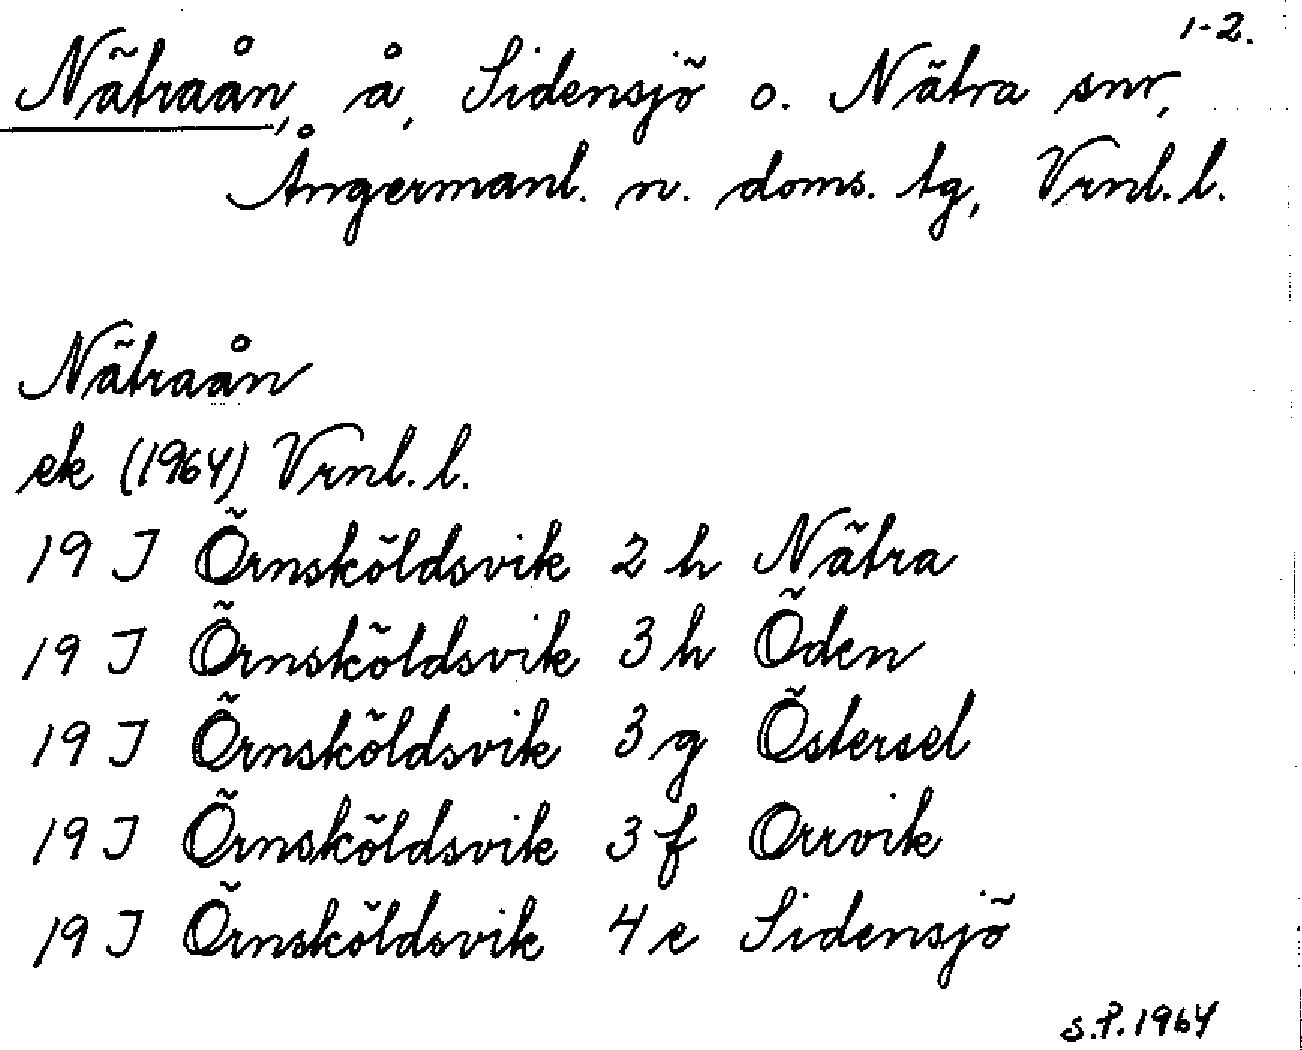 1-2.
Nätraån, å, Sidensjö o. Nätra snr,
Ångermanl. n. doms. tg, Vrnl. l.
Nätraån
ek (1964) Vrnl. l.
19 J Örnsköldsvik 2 h Nätra
19 J Örnsköldsvik 3 h Öden
19 J Örnsköldsvik 3 g Östersel
19 J Örnsköldsvik 3 f Orrvik
19 J Örnsköldsvik 4 e Sidensjö
S.P. 1964